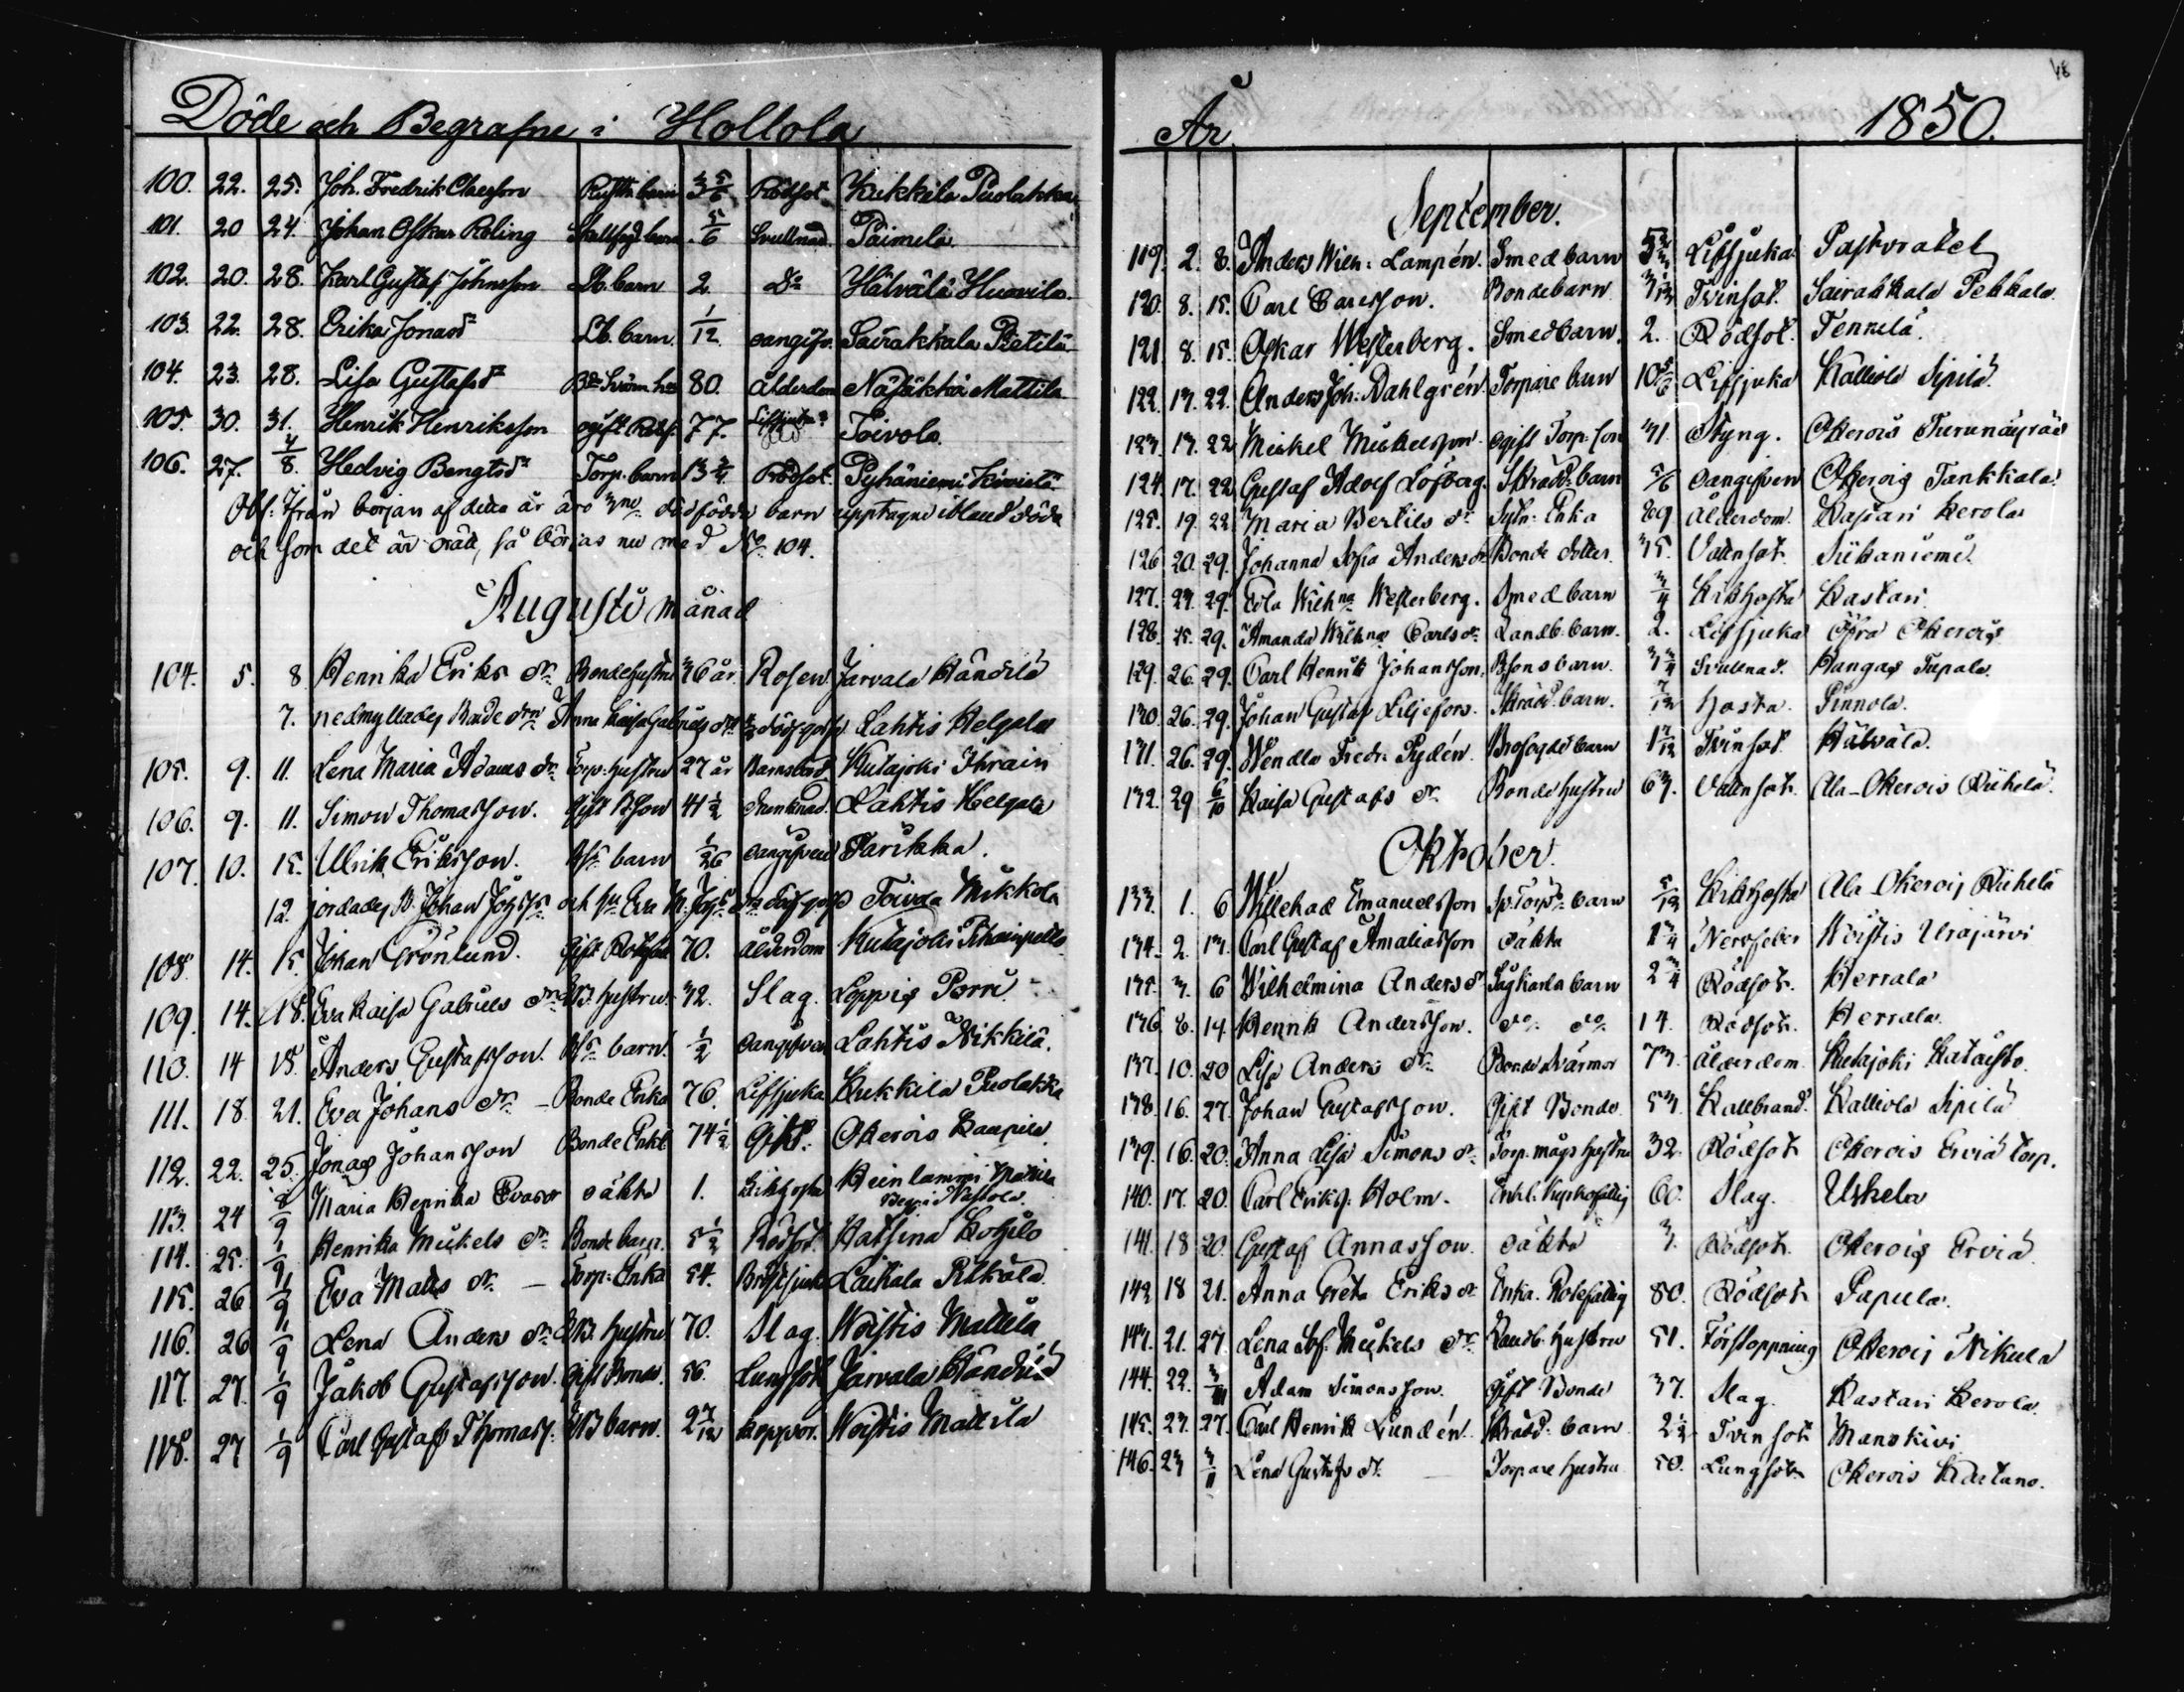 Döde och Begrafne i Hollola
100. 22. 25. Joh. Fredrik Claesson barn 3 5/6 Rödsot Kukkila Puolakka
101. 20 24. Johan Oskar Roling barn 5/6 Svullnad Paimela
102. 20. 28. Karl Gustaf Johnsson Lb. barn 2 Do Hälvälä Huovila
103. 22. 28. Erika Jonasdr Lb. barn. 1/12 oangifv. Sairakkala Pietilä
104. 23. 28. Lisa Gustafsdr 80. ålderdom Mattila
105. 30. 31. Henrik Henriksson ogift 77. Toivola
106. 27. 4/8. Hedvig Bengtsdr Torp. barn Rödsot Pyhäniemi
Obs: Ifrån början af detta år äro 3ne dödfödda barn upptagne ibland döda
och som det är orätt, så börjas nu med No 104.
Augusti månad
104. 5. 8 Henrika Eriks dr Bondehustru 36 år Rosen Jarvala Händilä
7. nedmyllades Bonde Anna Kaisa Gabriels Lahtis Helgala
105. 9. 11. Lena Maria Adams dr Torp. hustru 27 år Barnsbörd Kutajoki Ihrain
106. 9. 11. Simon Thomasson. Gift 41 1/2 Drunknad. Lahtis Helgala
107. 10. 15. Ulrik Eriksson. barn 1/26 oangifven Parikka.
12. jordades B. Johan och hu Eva Toivola Mikkola
108. 14. 15. Johan Grönlund. Gift 70. ålderdom Kutajoki
109. 14. 18. Eva Kaisa Gabriels dr LB. hustru 32. Slag. Loppis Porri
110. 14 18. Anders Gustafsson. barn. 1/2 oangifven Lahtis Nikkilä.
111. 18. 21. Eva Johans dr – Bonde Enka 76. Lifsjuka Kukkila Puolakka
112. 22. 25. Jonas Johansson Bonde Enkl 74 1/2 Gikt. Okerois Kaupila
113. 24 8/9 Maria Henrika Evasdr oäkta 1. Kikhosta Heinlammi
114. 25. 1/9 Henrika Mickels dr Bonde barn. 5 1/2 Rödsot. Hatsina Kotsilo
115. 26. 1/9 Eva Matts dr – Torp: Enka 54. Bröstsjuka Laitiala
116. 26 1/9 Lena Anders dr LB. hustru 70. Slag. Woistis Mattila
117. 27. 1/9 Jakob Gustafsson. Gift Bonde. 56. Lungsot Jarvala Händilä
118. 27 1/9 Carl Gustaf Thomass. LB barn. 2 7/12 koppor. Woistis Mattila
År 1850.
48
September.
119. 2. 8. Anders Wilh: Lampén. Smed barn Lifsjuka Pastoratet
120. 8. 15. Carl Carlsson. Bondebarn Tvinsot. Sairakkala Pekkala
121. 8. 15. Oskar Westerberg. Smedbarn. 2. Rödsot. Tennilä.
122. 17. 22. Anders Joh: Dahlgrén. Torpare barn 10 5/6 Lifsjuka Kalliola Sipilä.
123. 17. 22 Mickel Mickelsson ogift Torp: son 31. Styng. Okerois
124. 17. 22 Gustaf Adolf Löfberg. Skrädd: barn 5/6 oangifven Okerois Tankkala.
125. 19. 22 Maria Bertils dr Enka 89 ålderdom. Kastari Kerola
126 20. 29. Johanna Sofia Andersdr Bonde dotter. 35. Vattensot. Siikaniemi.
127. 23. 29. Eva Wilhna Westerberg. Smed barn 3/4 Kikhosta Kastari
128. 25. 29. Amanda Wilhna Carls dr Landb. barn. 2. Lifsjuka Öfra Okerois
129. 26. 29. Carl Henrik Johansson. barn. 3 3/4 Svullnad. Hangas Tupala
130. 26. 29. Johan Gustaf Liljefors. Skrädd. barn. 7/12 Hosta. Pinnola.
131. 26. 29. Wendla Fredr. Pydén. barn 1 7/12 Tvinsot. Hälvälä.
132. 29 6/10 Kaisa Gustafs dr Bonde hustru 63. Vattensot. Ala-Okerois Riihelä.
Oktober.
133. 1. 6 Willehad Emanuelsson barn 5/12 Kikhosta Ala-Okerois Riihelä
134. 2. 13. Carl Gustaf Amaliasson oäkta 1 3/4 Nervfeber Woistis Urajärvi
135. 3. 6 Wilhelmina Andersdr Sågkarla barn 2 3/4 Rödsot. Herrala
136. 8. 14. Henrik Andersson. do do 14. Rödsot. Herrala.
137. 10. 20 Lisa Anders dr Bonde Svärmor 73. ålderdom Kutajoki Kataisto
138. 16. 27. Johan Gustafsson. Gift Bonde 53. Kallbrand. Kalliola Sipilä
139. 16. 20. Anna Lisa Simons dr Torp. mågs hustru 32. Rödsot Okerois Erviä torp.
140. 17. 20. Carl Eriks. Holm. Enkl. 60. Slag. Uskela
141. 18 20. Gustaf Annasson. oäkta 3. Rödsot. Okerois Erviä
142 18 21. Anna Greta Eriks dr Enka. Rotefattig 80. Rödsot Papula.
143. 21. 27. Lena Sof. Mickels dr Landb. hustru 51. Förstoppning Okerois Nikula
144. 22. Adam Simonsson. Gift Bonde 37. Slag. Kastari Kerola.
145. 23. 27. Carl Henrik Lundén. Skrädd. barn 2 1/2 Tvinsot Manskivi
146. 23 3/11 Lena Gustafs dr. Torpare hustru 50. Lungsot. Okerois Kaetano.